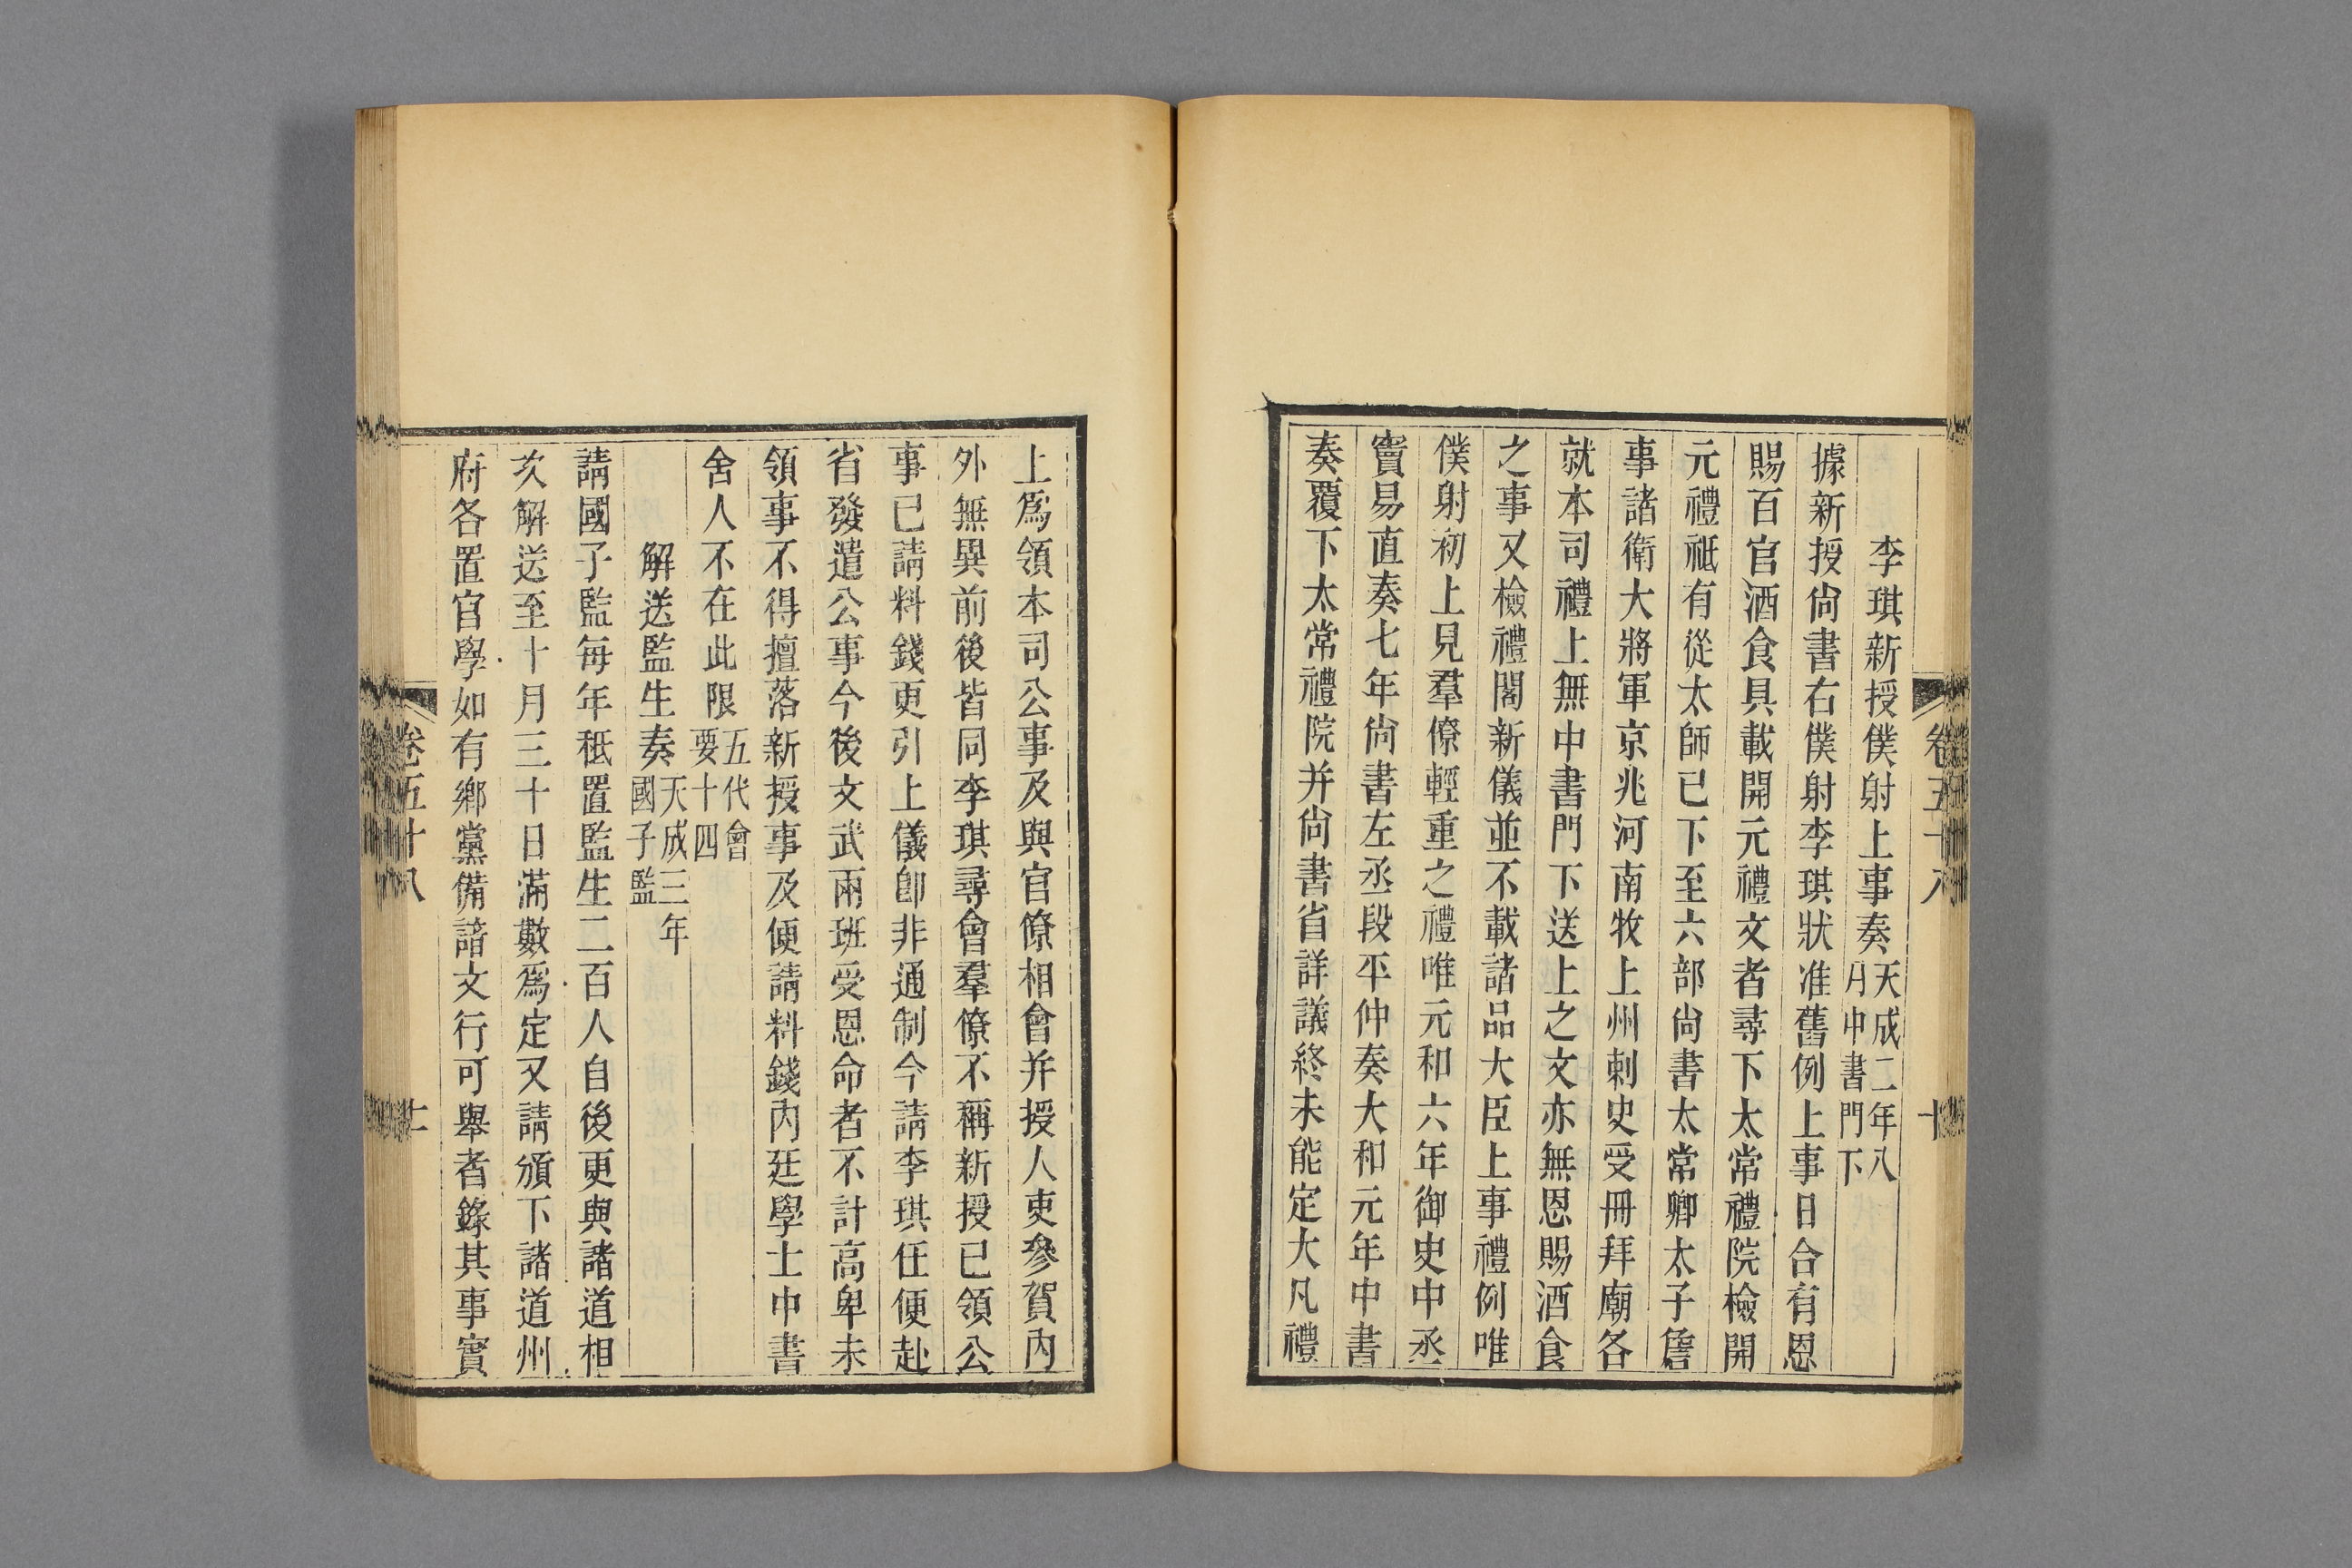 李琪新授僕射上事奏天成二年八
月中書門下
據新授尙書右僕射李琪狀准舊例上事日合有恩
賜百官酒食具載開元禮文者尋下太常禮院檢開
元禮祗有從太師已下至六部尙書太常卿太子詹
事諸衛大將軍京兆河南牧上州刺史受冊拜廟各
就本司禮上無中書門下送上之文亦無恩賜酒食
之事又檢禮閣新儀並不載諸品大臣上事禮例唯
僕射初上見羣僚輕重之禮唯元和六年御史中丞
竇易直奏七年尙書左丞段平仲奏大和元年中書
奏覆下太常禮院并尙書省詳議終未能定大凡禮
上爲領本司公事及與官僚相會并授人吏參賀內
外無異前後皆同李琪尋會羣僚不稱新授已領公
事已請料錢更引上儀卽非通制今請李琪任便赴
省發遣公事今後文武兩班受恩命者不計高卑未
領事不得擅落新授事及便請料錢內廷學士中書
舍人不在此限五代會
要十四
解送監生奏天成三年
國子監
請國子監每年秪置監生二百人自後更與諸道相
次解送至十月三十日滿數爲定又請頒下諸道州
府各置官學如有鄉黨備諳文行可舉者錄其事實
卷五十八
十一